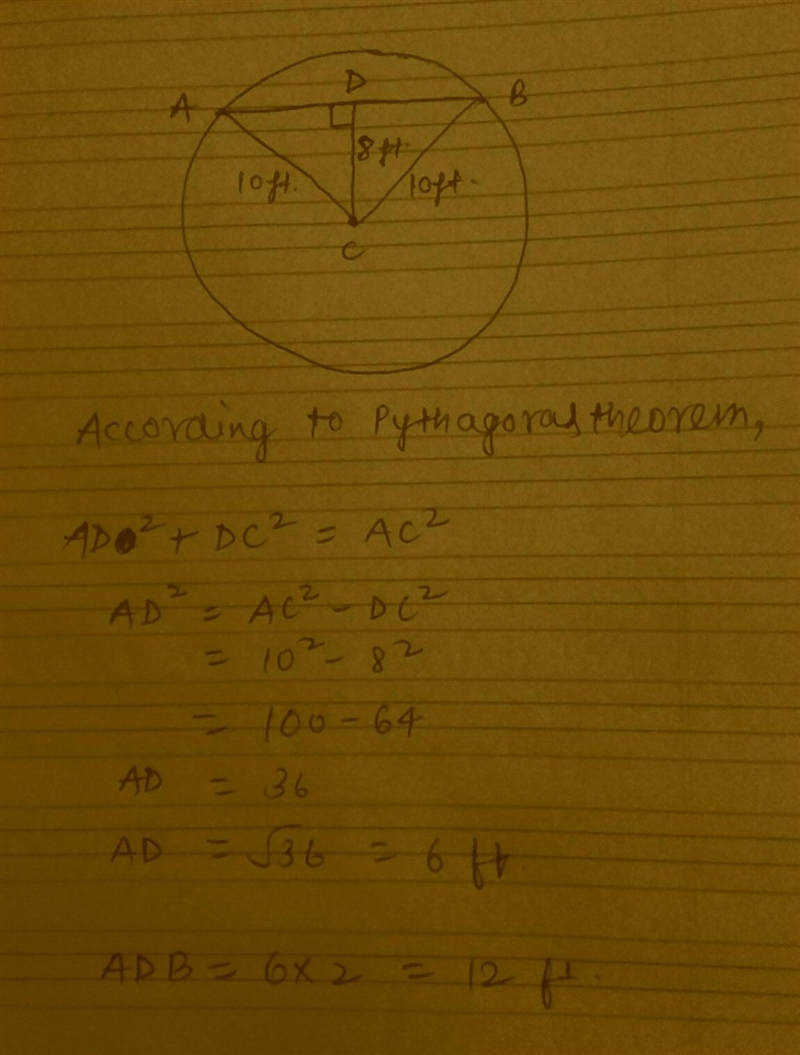 D
A B
8ft.
10ft. 10ft.
C
According to Pythagoras theorem,
AD² + DC² = AC²
AD² = AC² - DC²
= 10² - 8²
= 100 - 64
AD = 36
AD = √36 = 6 ft.
ADB = 6 x 2 = 12 ft.